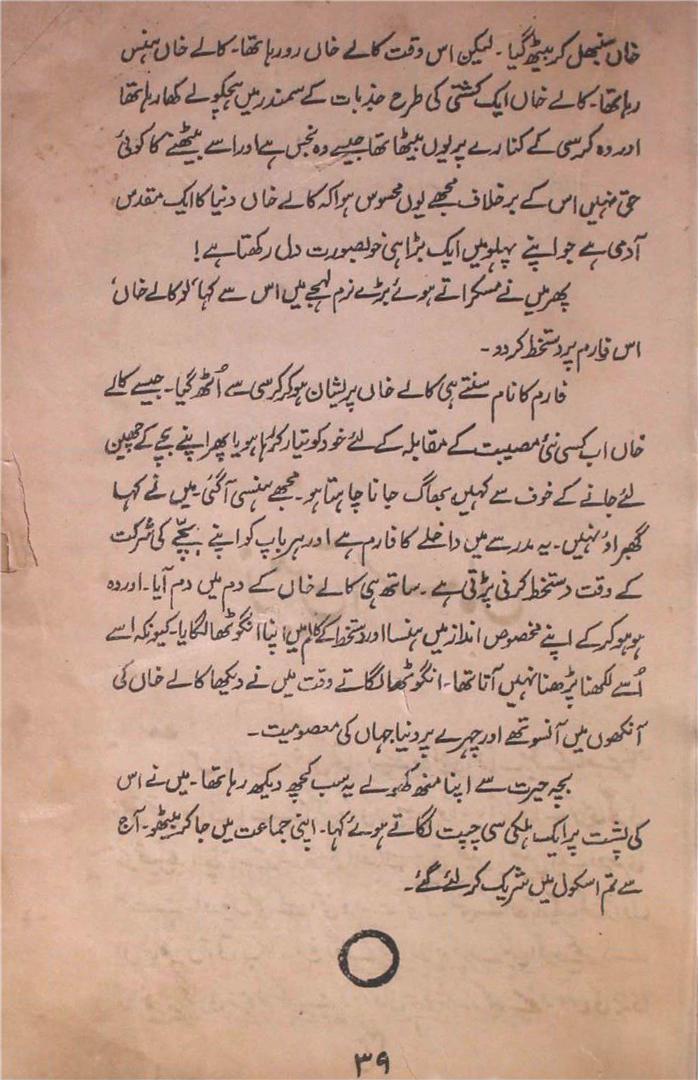 خاں سنبھل کر بیٹھ گیا۔ لیکن اس وقت کالے خاں رو رہا تھا۔ کالے خاں ہنس
رہا تھا۔ کالے خاں ایک کشتی کی طرح جذبات کے سمندر میں ہچکولے کھا رہا تھا
اور وہ کرسی کے کنارے پر یوں بیٹھا تھا جیسے وہ نجس ہے اور اسے بیٹھنے کا کوئی
حق نہیں اس کے برخلاف مجھے یوں محسوس ہوا کہ کالے خاں دنیا کا ایک مقدس
آدمی ہے جو اپنے پہلو میں ایک بڑا ہی خوبصورت دل رکھتا ہے!
پھر میں نے مسکراتے ہوئے بڑے نرم لہجے میں اس سے کہا ‘لو کالے خاں’
اس فارم پر دستخط کر دو۔
فارم کا نام سنتے ہی کالے خاں پریشان ہو کر کرسی سے اُٹھ گیا۔ جیسے کالے
خاں اب کسی نئی مصیبت کے مقابلہ کے لئے خود کو تیار کر رہا ہو یا پھر اپنے بچے کے چھین
لئے جانے کے خوف سے کہیں بھاگ جانا چاہتا ہو۔ مجھے ہنسی آ گئی میں نے کہا
گھبراؤ نہیں۔ یہ مدرسے میں داخلے کا فارم ہے اور ہر باپ کو اپنے بچّے کی شرکت
کے وقت دستخط کرنی پڑتی ہے۔ ساتھ ہی کالے خاں کے دم میں دم آیا۔ اور وہ
ہو ہو کر کے اپنے مخصوص انداز میں ہنسا اور دستخط کے کالم میں اپنا انگوٹھا لگایا۔ کیونکہ اسے
اُسے لکھنا پڑھنا نہیں آتا تھا۔ انگوٹھا لگاتے وقت میں نے دیکھا کالے خاں کی
آنکھوں میں آنسو تھے اور چہرے پر دنیا جہاں کی معصومیت۔
بچہ حیرت سے اپنا منھ کھولے یہ سب کچھ دیکھ رہا تھا۔ میں نے اس
کی پشت پر ایک ہلکی سی چپت لگاتے ہوئے کہا۔ اپنی جماعت میں جا کر بیٹھو۔ آج
سے تم اسکول میں شریک کر لئے گئے۔
۳۹